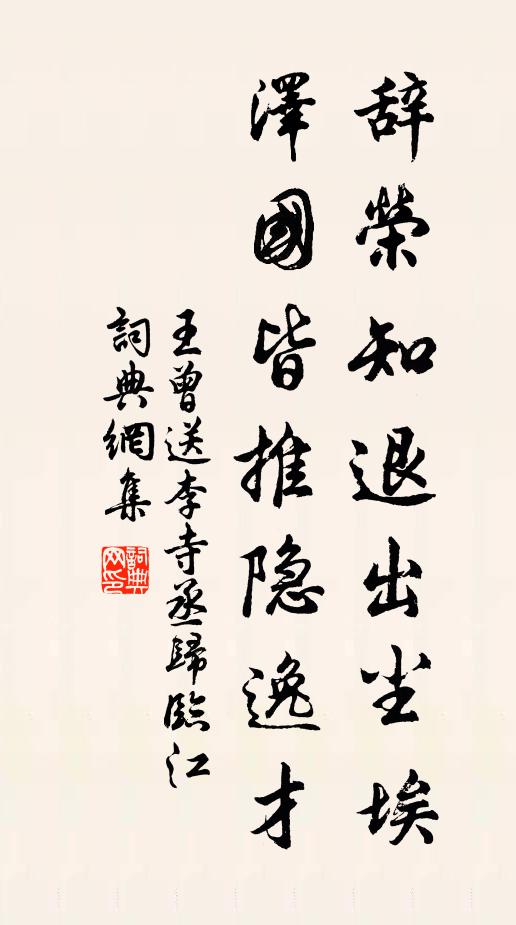 辞榮知退出尘埃
澤國皆推隐逸才
王曾送李寺丞歸臨江
詞典網集
詞典网印